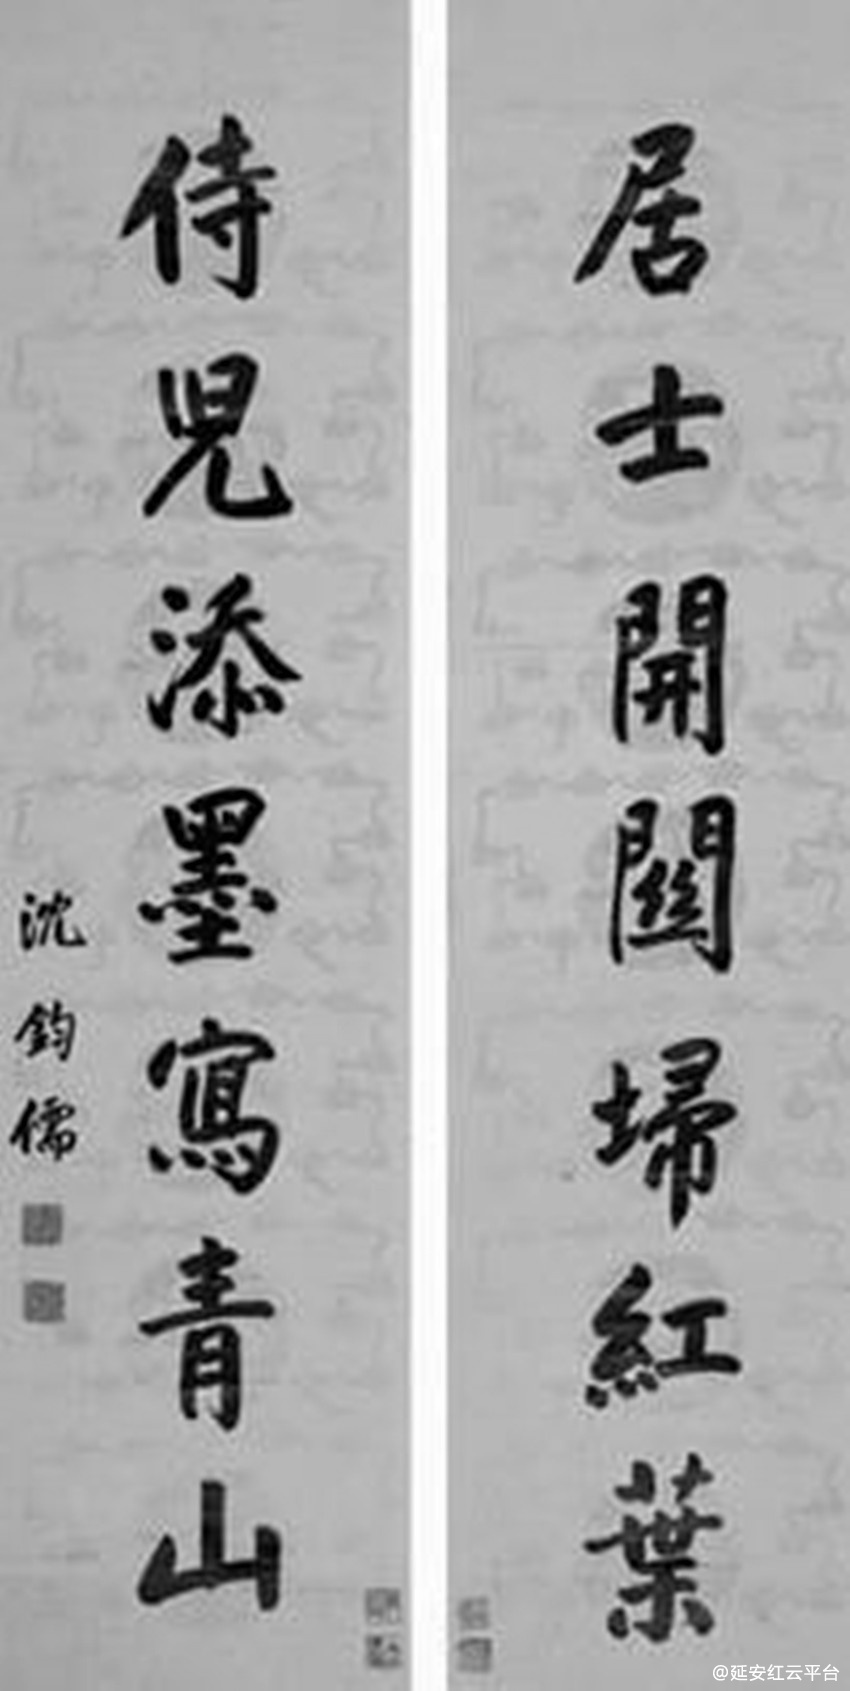 居士開關埽紅葉
侍兒添墨寫青山
沈鈞儒
@延安红云平台